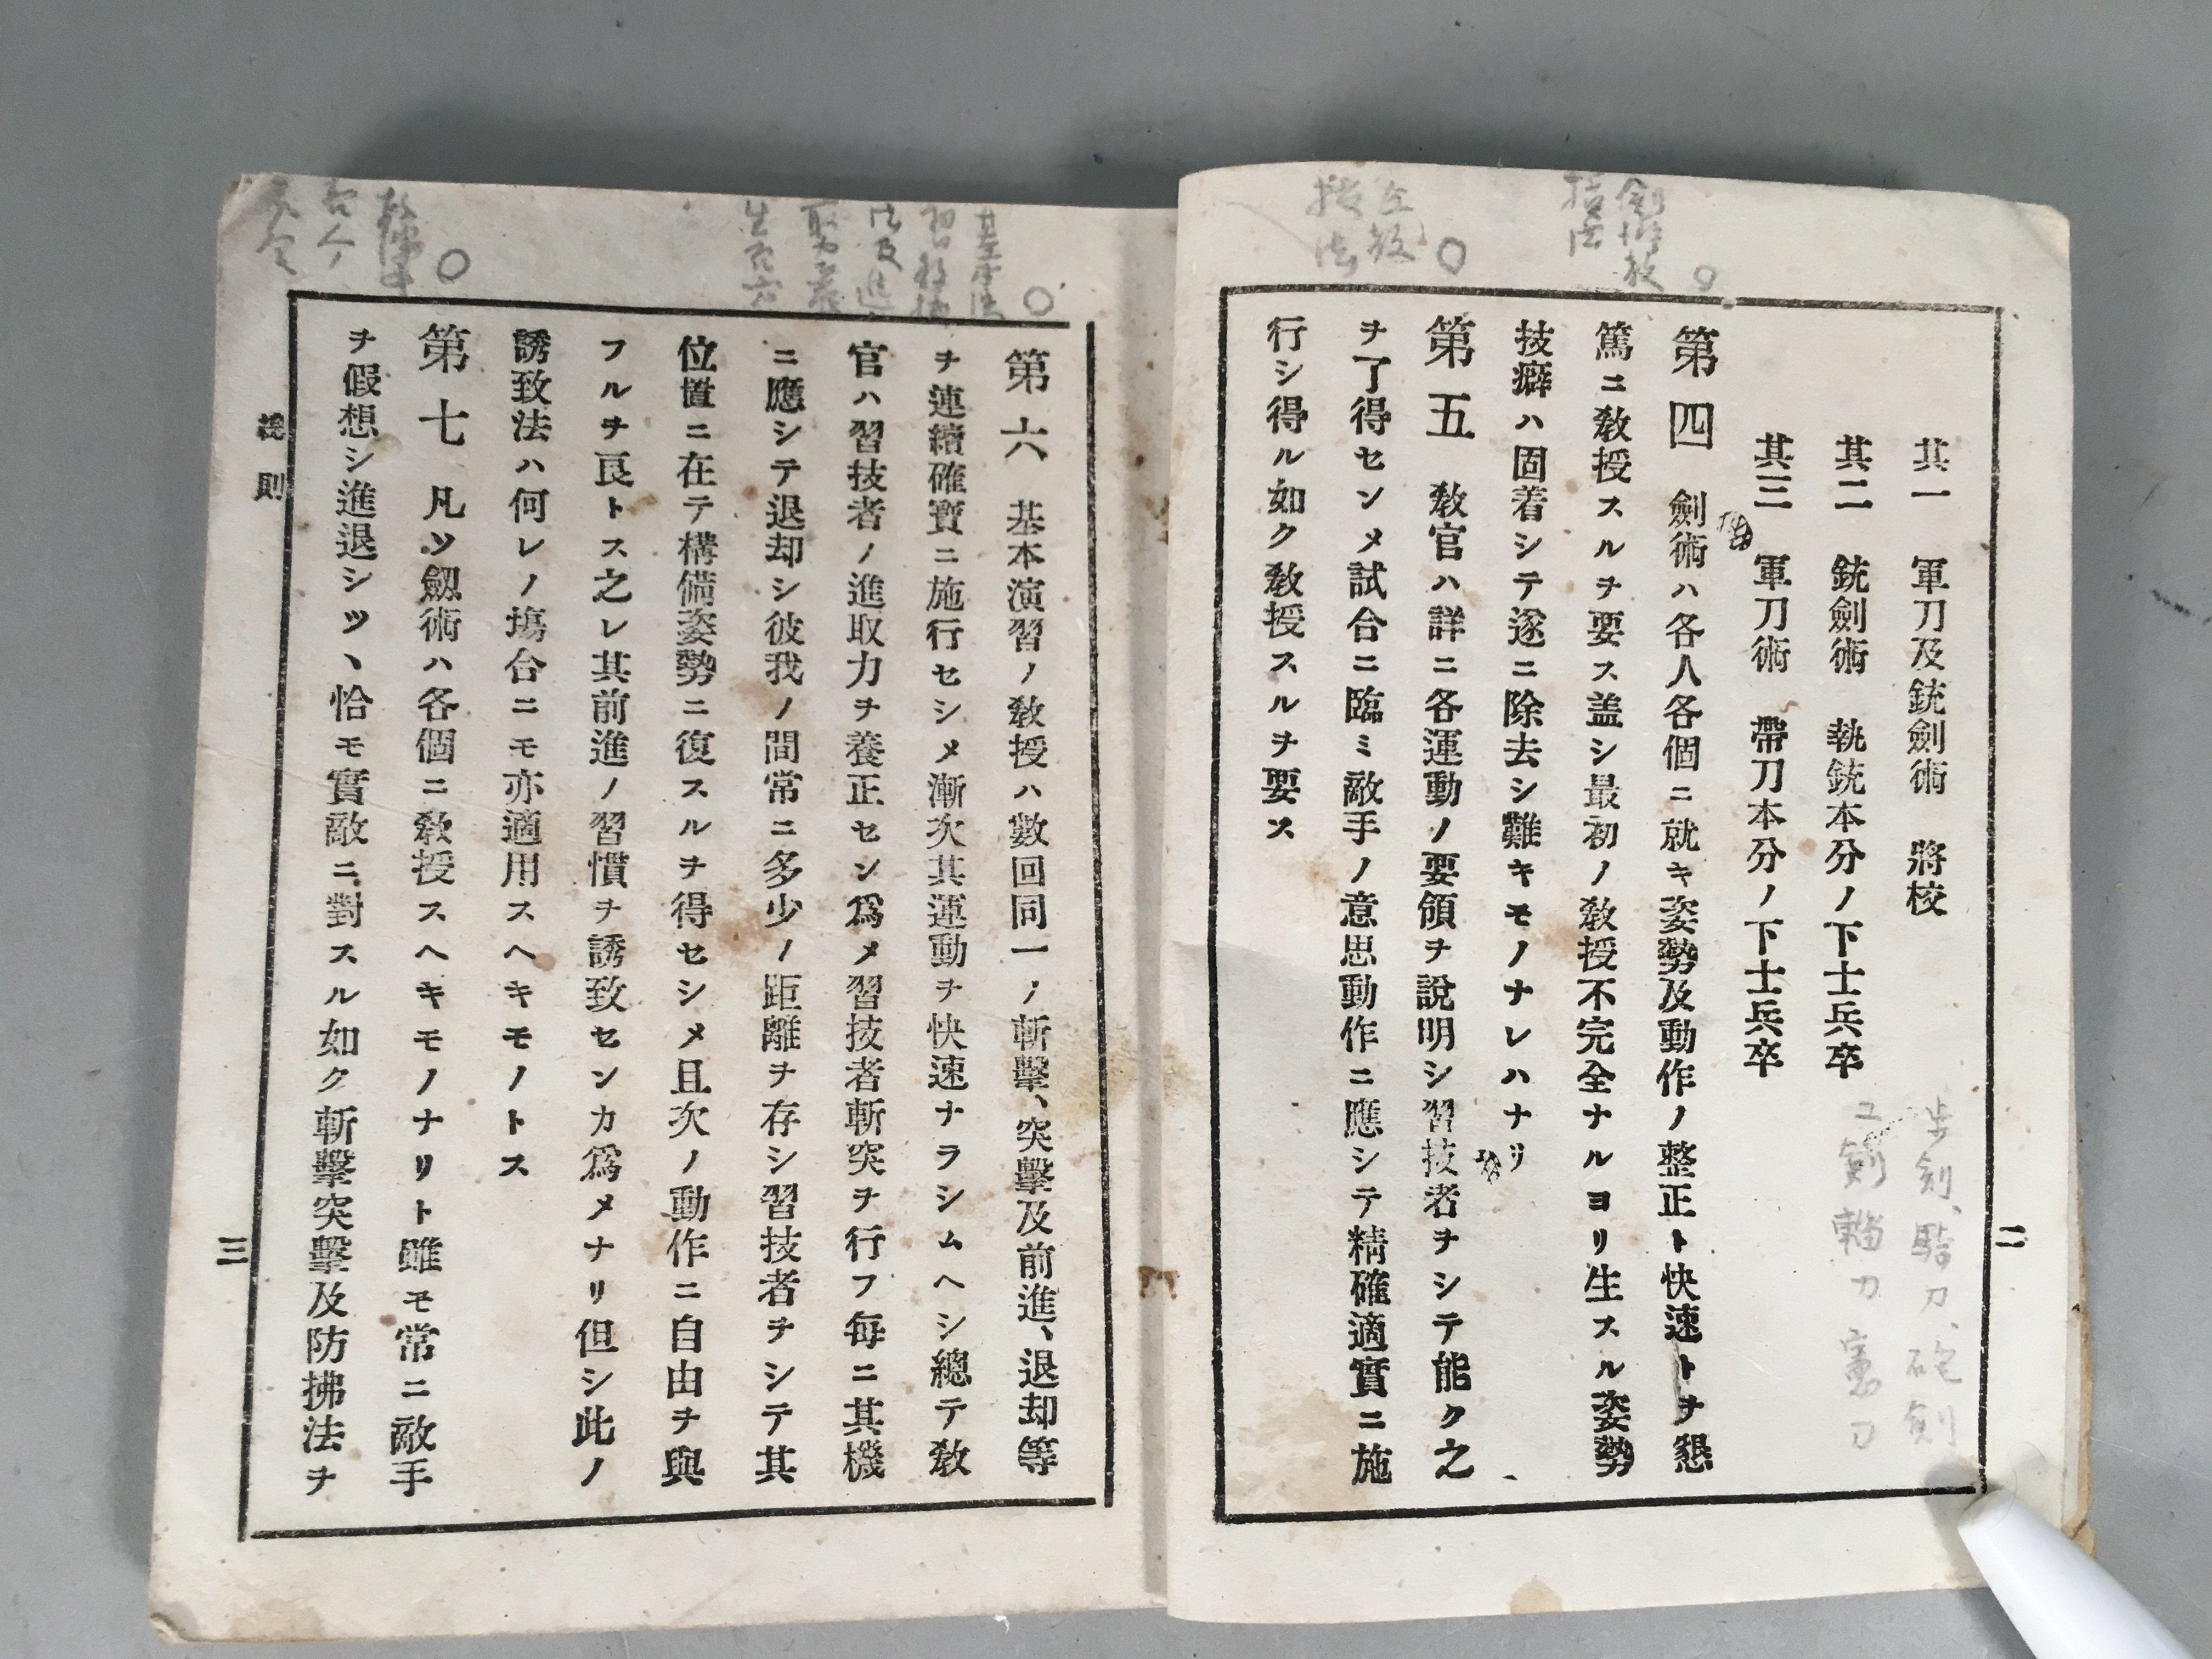 二
其一　軍刀及銃劍術　將校
其二　銃劍術　執銃本分ノ下士兵卒
其三　軍刀術　帶刀本分ノ下士兵卒
第四　劍術ハ各人各個ニ就キ姿勢及動作ノ整正ト快速トヲ懇
篤ニ敎授スルヲ要ス盖シ最初ノ敎授不完全ナルヨリ生スル姿勢
技癖ハ固着シテ遂ニ除去シ難キモノナレハナリ
第五　敎官ハ詳ニ各運動ノ要領ヲ說明シ習技者ヲシテ能ク之
ヲ了得センメ試合ニ臨ミ敵手ノ意思動作ニ應シテ精確適實ニ施
行シ得ル如ク敎授スルヲ要ス
步劍、騎刀、砲劍
工劍 輜刀 憲刀
第六　基本演習ノ敎授ハ數回同一ノ斬擊、突擊及前進、退却等
ヲ連續確實ニ施行セシメ漸次其運動ヲ快速ナラシムヘシ總テ敎
官ハ習技者ノ進取力ヲ養正セシ爲メ習技者斬突ヲ行フ每ニ其機
ニ應シテ退却シ彼我ノ間常ニ多少ノ距離ヲ存シ習技者ヲシテ其
位置ニ在テ構備姿勢ニ復スルヲ得セシメ且次ノ動作ニ自由ヲ與
フルヲ良トス之レ其前進ノ習慣ヲ誘致センカ爲メナリ但シ此ノ
誘致法ハ何レノ塲合ニモ亦適用スヘキモノトス
第七　凡ソ劔術ハ各個ニ敎授スヘキモノナリト雖モ常ニ敵手
ヲ假想シ進退シツヽ恰モ實敵ニ對スル如ク斬擊突擊及防拂法ヲ
總則
三